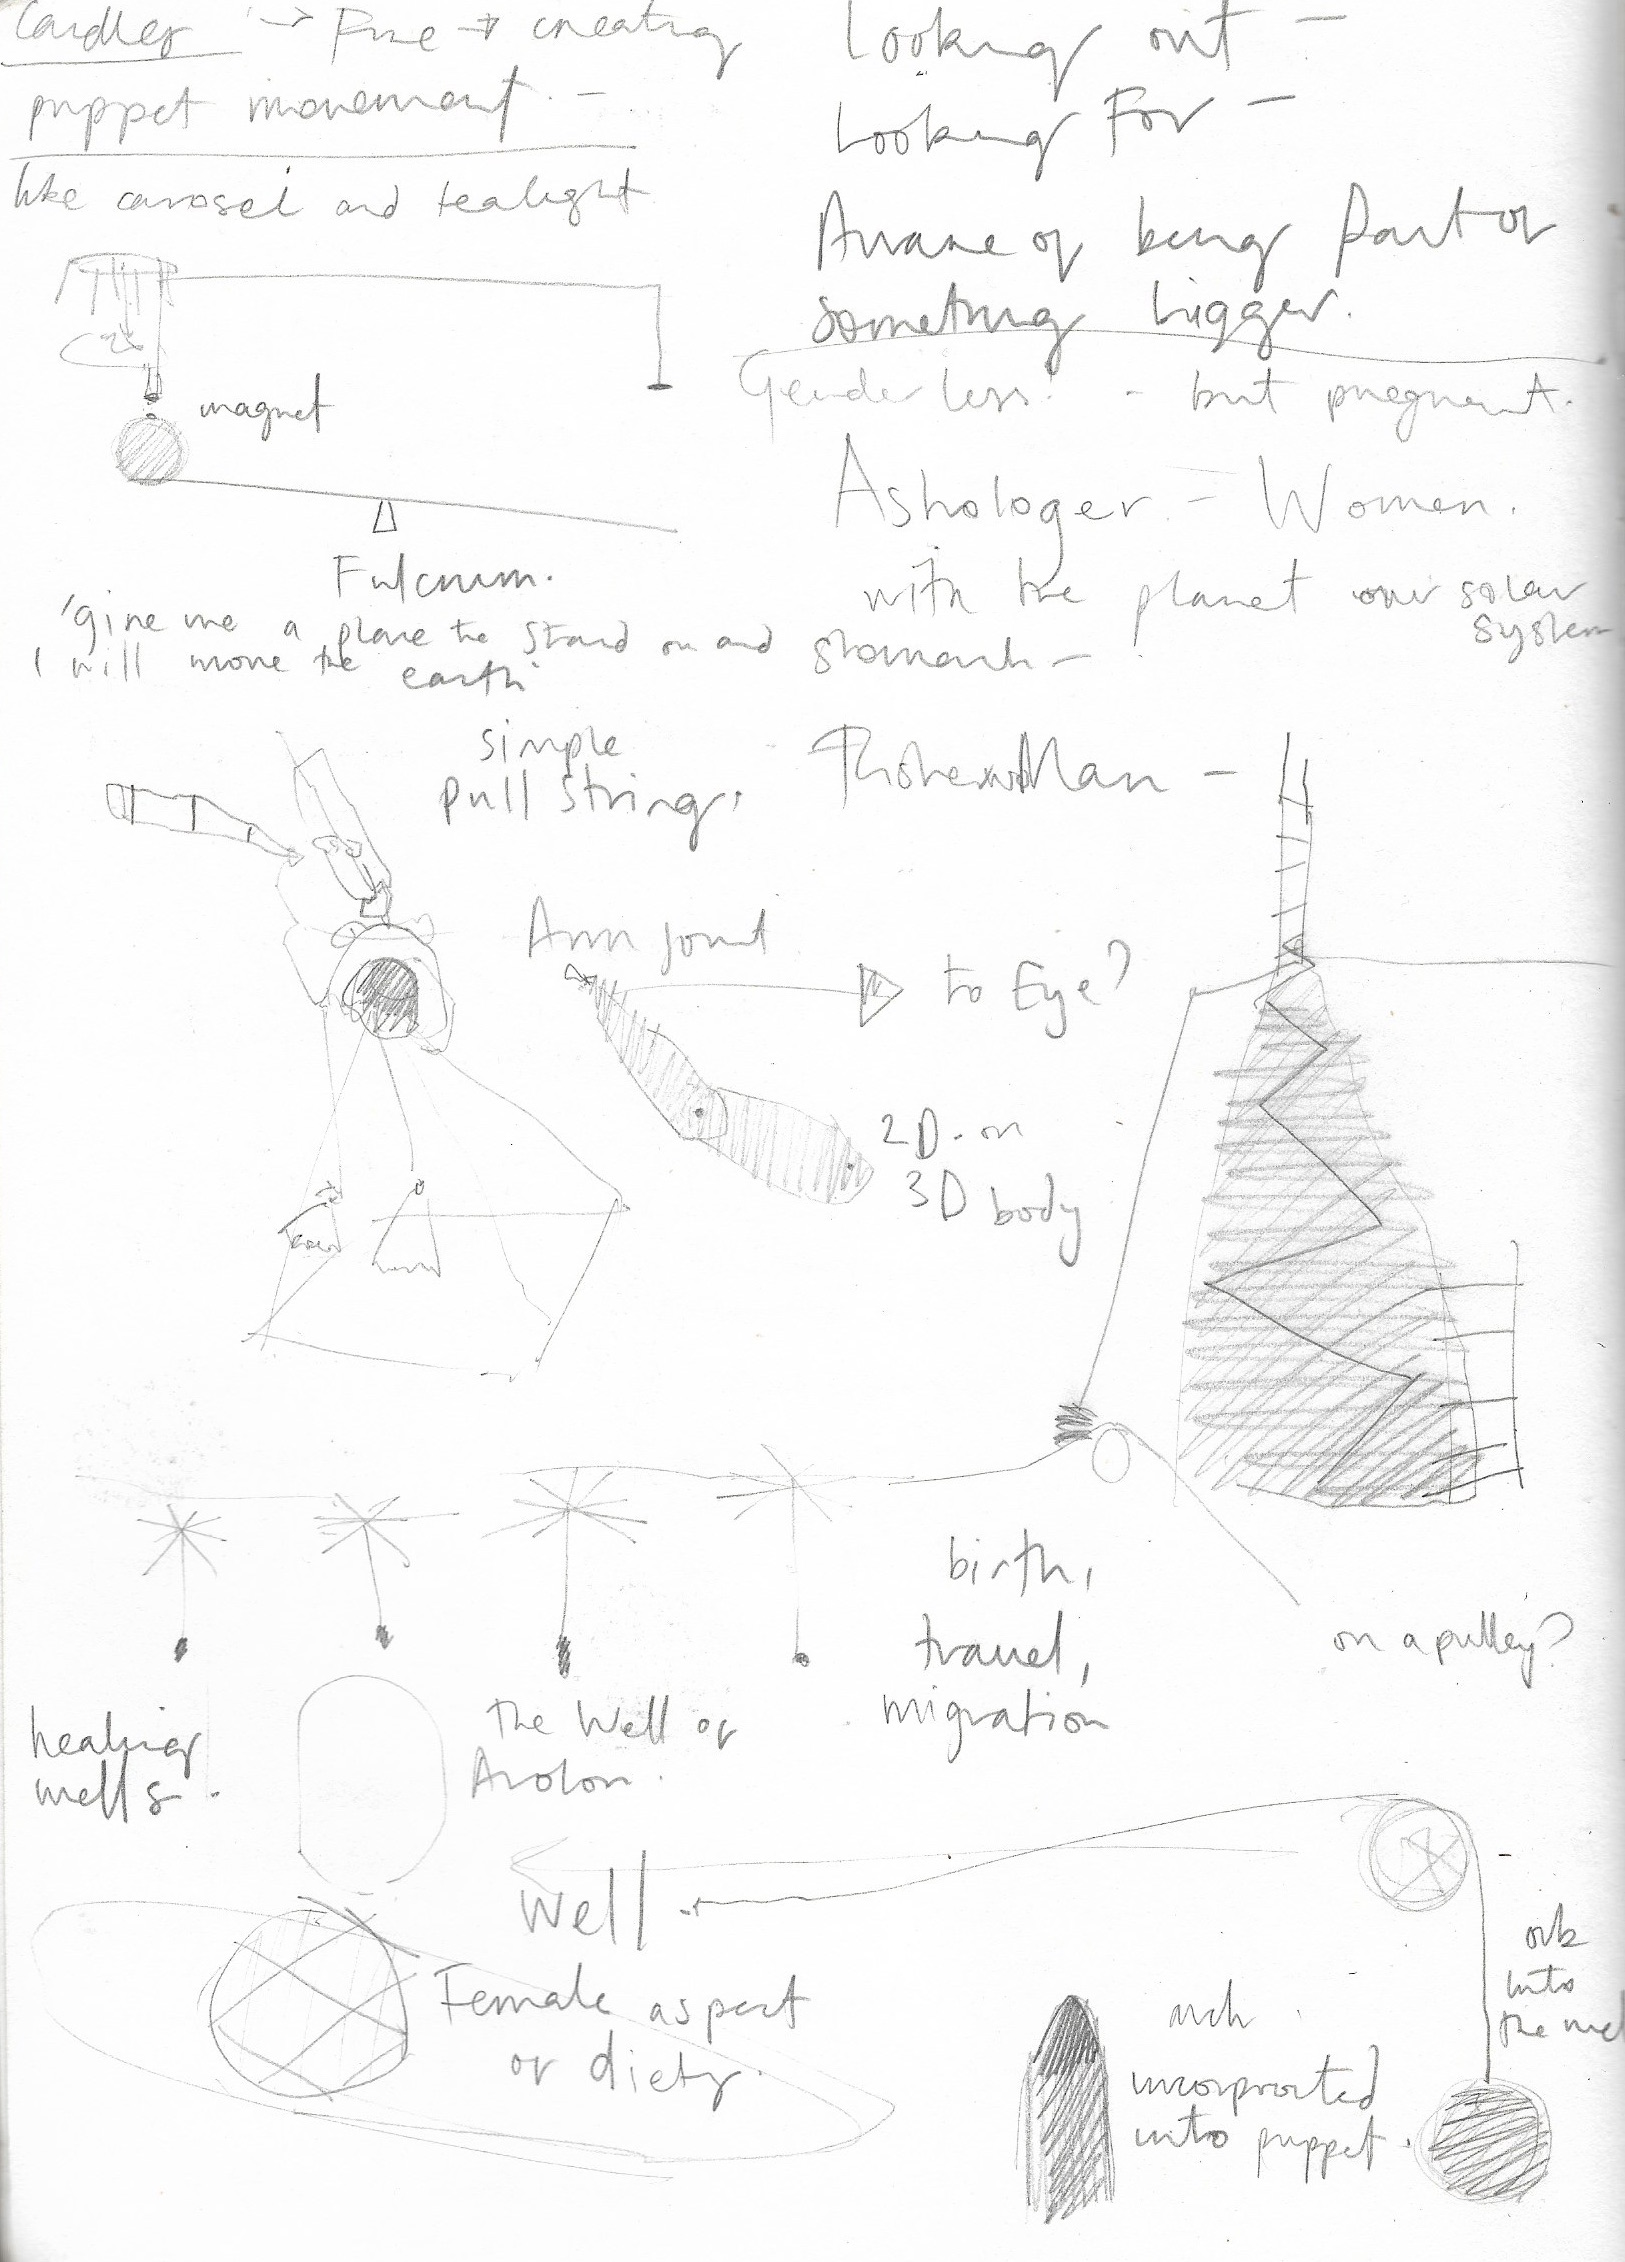 Candles → Fire → creating
puppet movement. –
like carosel and tealight
magnet
Fulcrum.
'give me a place to stand on and
I will move the
earth'
Looking out –
Looking For –
Aware of being Part of
something bigger.
Genderless! - but pregnant.
Astrologer – Women.
with the planet our solar
system
stomach –
simple
pull string.
Arm joint
to Eye?
2D - on
3D body
birth,
travel,
migration
on a pulley?
healing
wells.
The Well of
Avolon.
Well
Female aspect
of diety.
orb
into
the
arch
incorporated
into puppet.